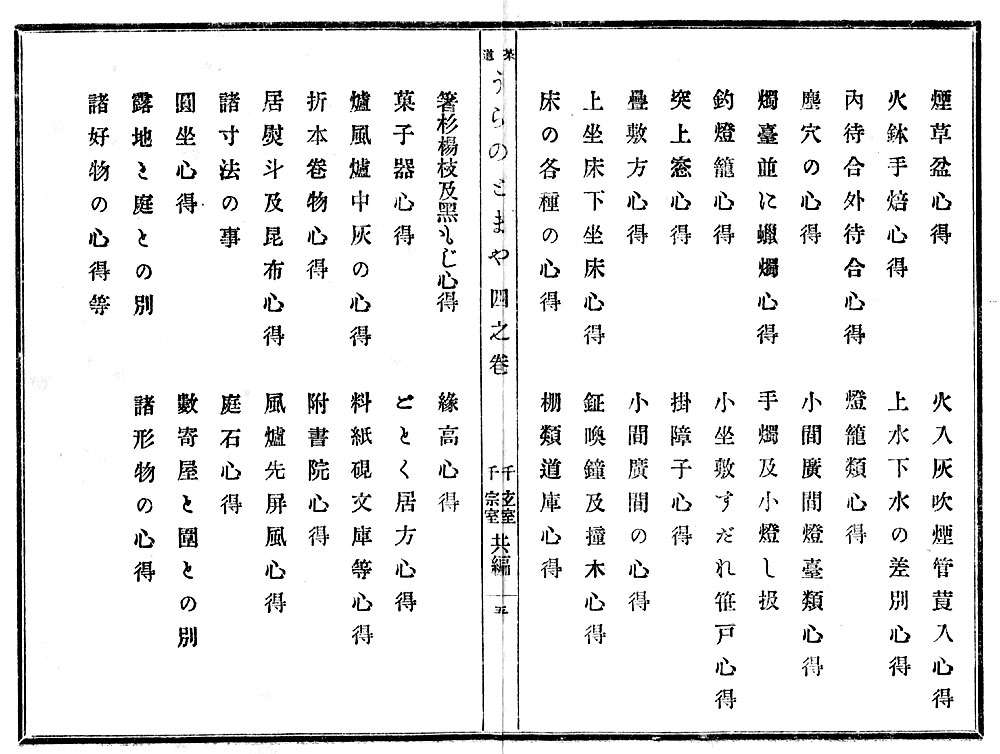 煙草盆心得
火入灰吹煙管莨入心得
火鉢手焙心得
上水下水の差別心得
内待合外待合心得
燈籠類心得
塵穴の心得
小間廣間燈臺類心得
燭臺並に蠟燭心得
手燭及小燈し扱
釣燈籠心得
小坐敷すだれ笹戸心得
突上窓心得
掛障子心得
疊敷方心得
小間廣間の心得
上坐床下坐床心得
鉦喚鐘及撞木心得
床の各種の心得
棚類道庫心得
茶道 うらのとまや 四之卷
千玄室
千宗室
共編
五
箸杉楊枝及黑もじ心得
緣高心得
菓子器心得
ごとく居方心得
爐風爐中灰の心得
料紙硯文庫等心得
折本卷物心得
附書院心得
居熨斗及昆布心得
風爐先屏風心得
諸寸法の事
庭石心得
圓坐心得
數寄屋と圍との別
露地と庭との別
諸形物の心得
諸好物の心得等